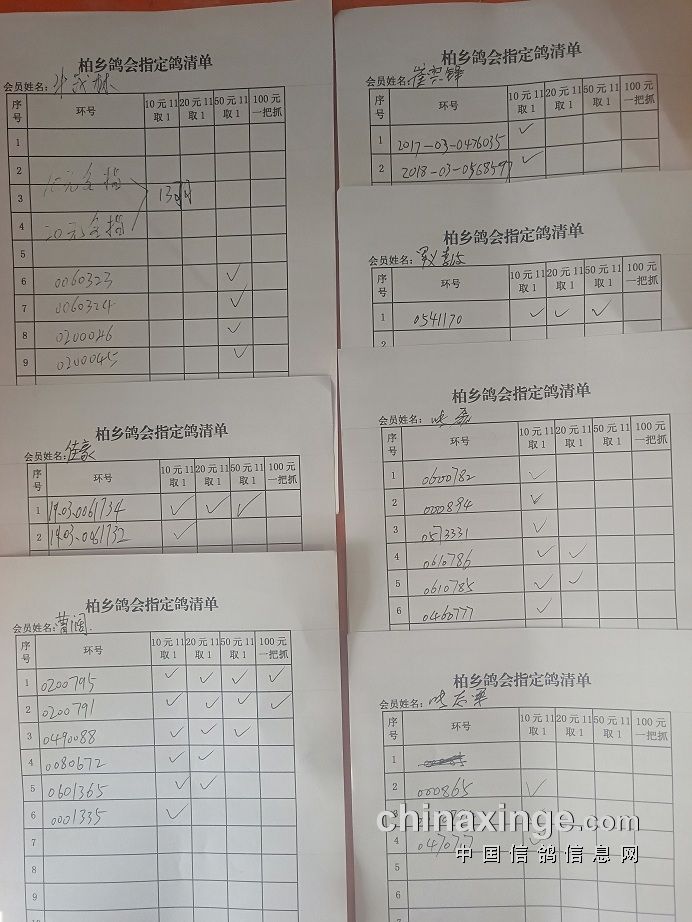 柏乡鸽会指定鸽清单
会员姓名：
序号 环号 10元11取1 20元11取1 50元11取1 100元一把抓
1
2 10元全指
3 13羽
4 20元全指
5
6 0060323 ✓
7 0060324 ✓
8 0200046 ✓
9 0200045 ✓
柏乡鸽会指定鸽清单
会员姓名：
序号 环号 10元11取1 20元11取1 50元11取1 100元一把抓
1 2017-03-0476035 ✓
2 2018-03-0568597 ✓
柏乡鸽会指定鸽清单
会员姓名：
序号 环号 10元11取1 20元11取1 50元11取1 100元一把抓
1 0541170 ✓ ✓ ✓
2
柏乡鸽会指定鸽清单
会员姓名：佳豪
序号 环号 10元11取1 20元11取1 50元11取1 100元一把抓
1 19.03.0061734 ✓ ✓ ✓
2 19.03.0061732 ✓
柏乡鸽会指定鸽清单
会员姓名：
序号 环号 10元11取1 20元11取1 50元11取1 100元一把抓
1 0600782 ✓
2 000894 ✓
3 0573331 ✓
4 0610786 ✓ ✓
5 0610785 ✓ ✓
6 0460777 ✓
柏乡鸽会指定鸽清单
会员姓名：曹阔
序号 环号 10元11取1 20元11取1 50元11取1 100元一把抓
1 0200795 ✓ ✓ ✓ ✓
2 0200791 ✓ ✓ ✓ ✓
3 0490088 ✓ ✓
4 0080672 ✓ ✓
5 0601365 ✓ ✓
6 0001335 ✓
7
8
9
10
柏乡鸽会指定鸽清单
会员姓名：
序号 环号 10元11取1 20元11取1 50元11取1 100元一把抓
1
2 000865 ✓
4 ✓
5
6
chinaxinge.com
中国信鸽信息网